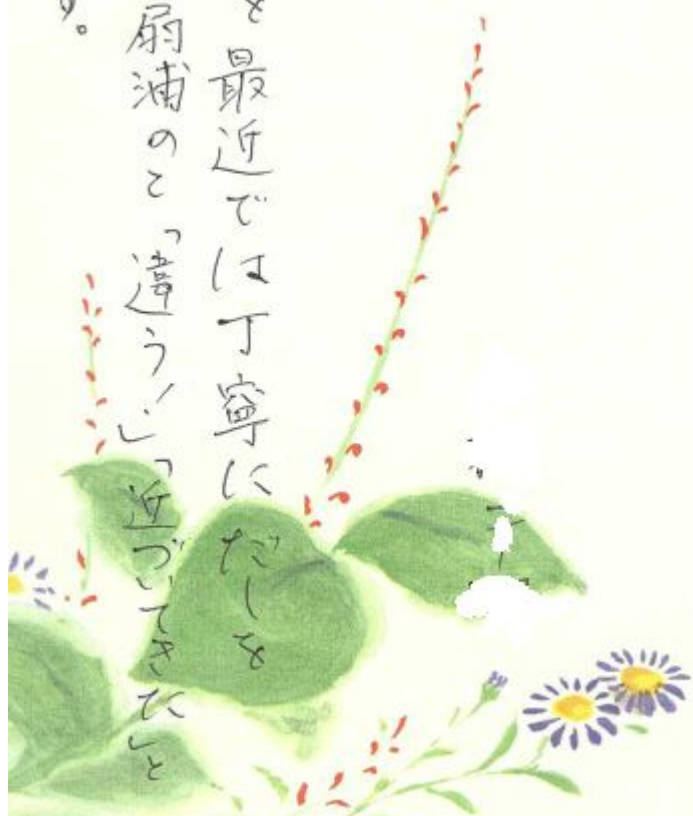 を最近では丁寧にだしを
扇浦のこ「違う!」「近づいてきた」と
す。